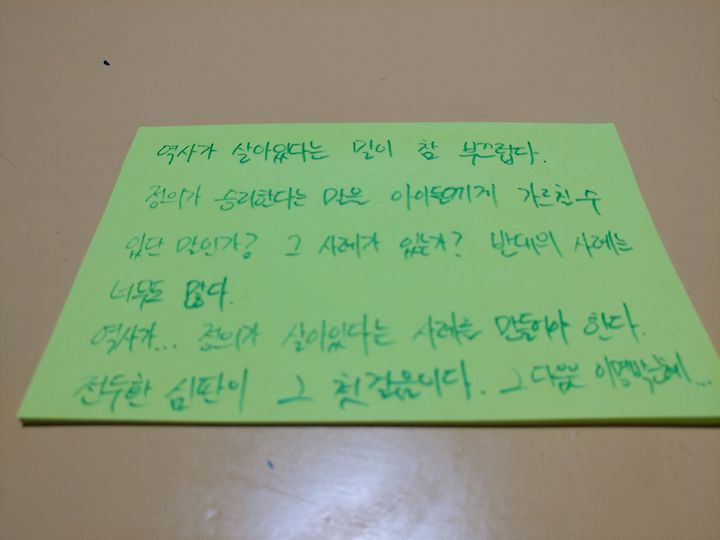 역사가 살아있다는 말이 참 부끄럽다.
정의가 승리한다는 말은 아이들에게 가르칠 수
있단 말인가? 그 사례가 있는가? 반대의 사례는
너무도 많다.
역사가... 정의가 살아있다는 사례를 만들어야 한다.
전두환 심판이 그 첫걸음이다. 그 다음은 이명박근혜...